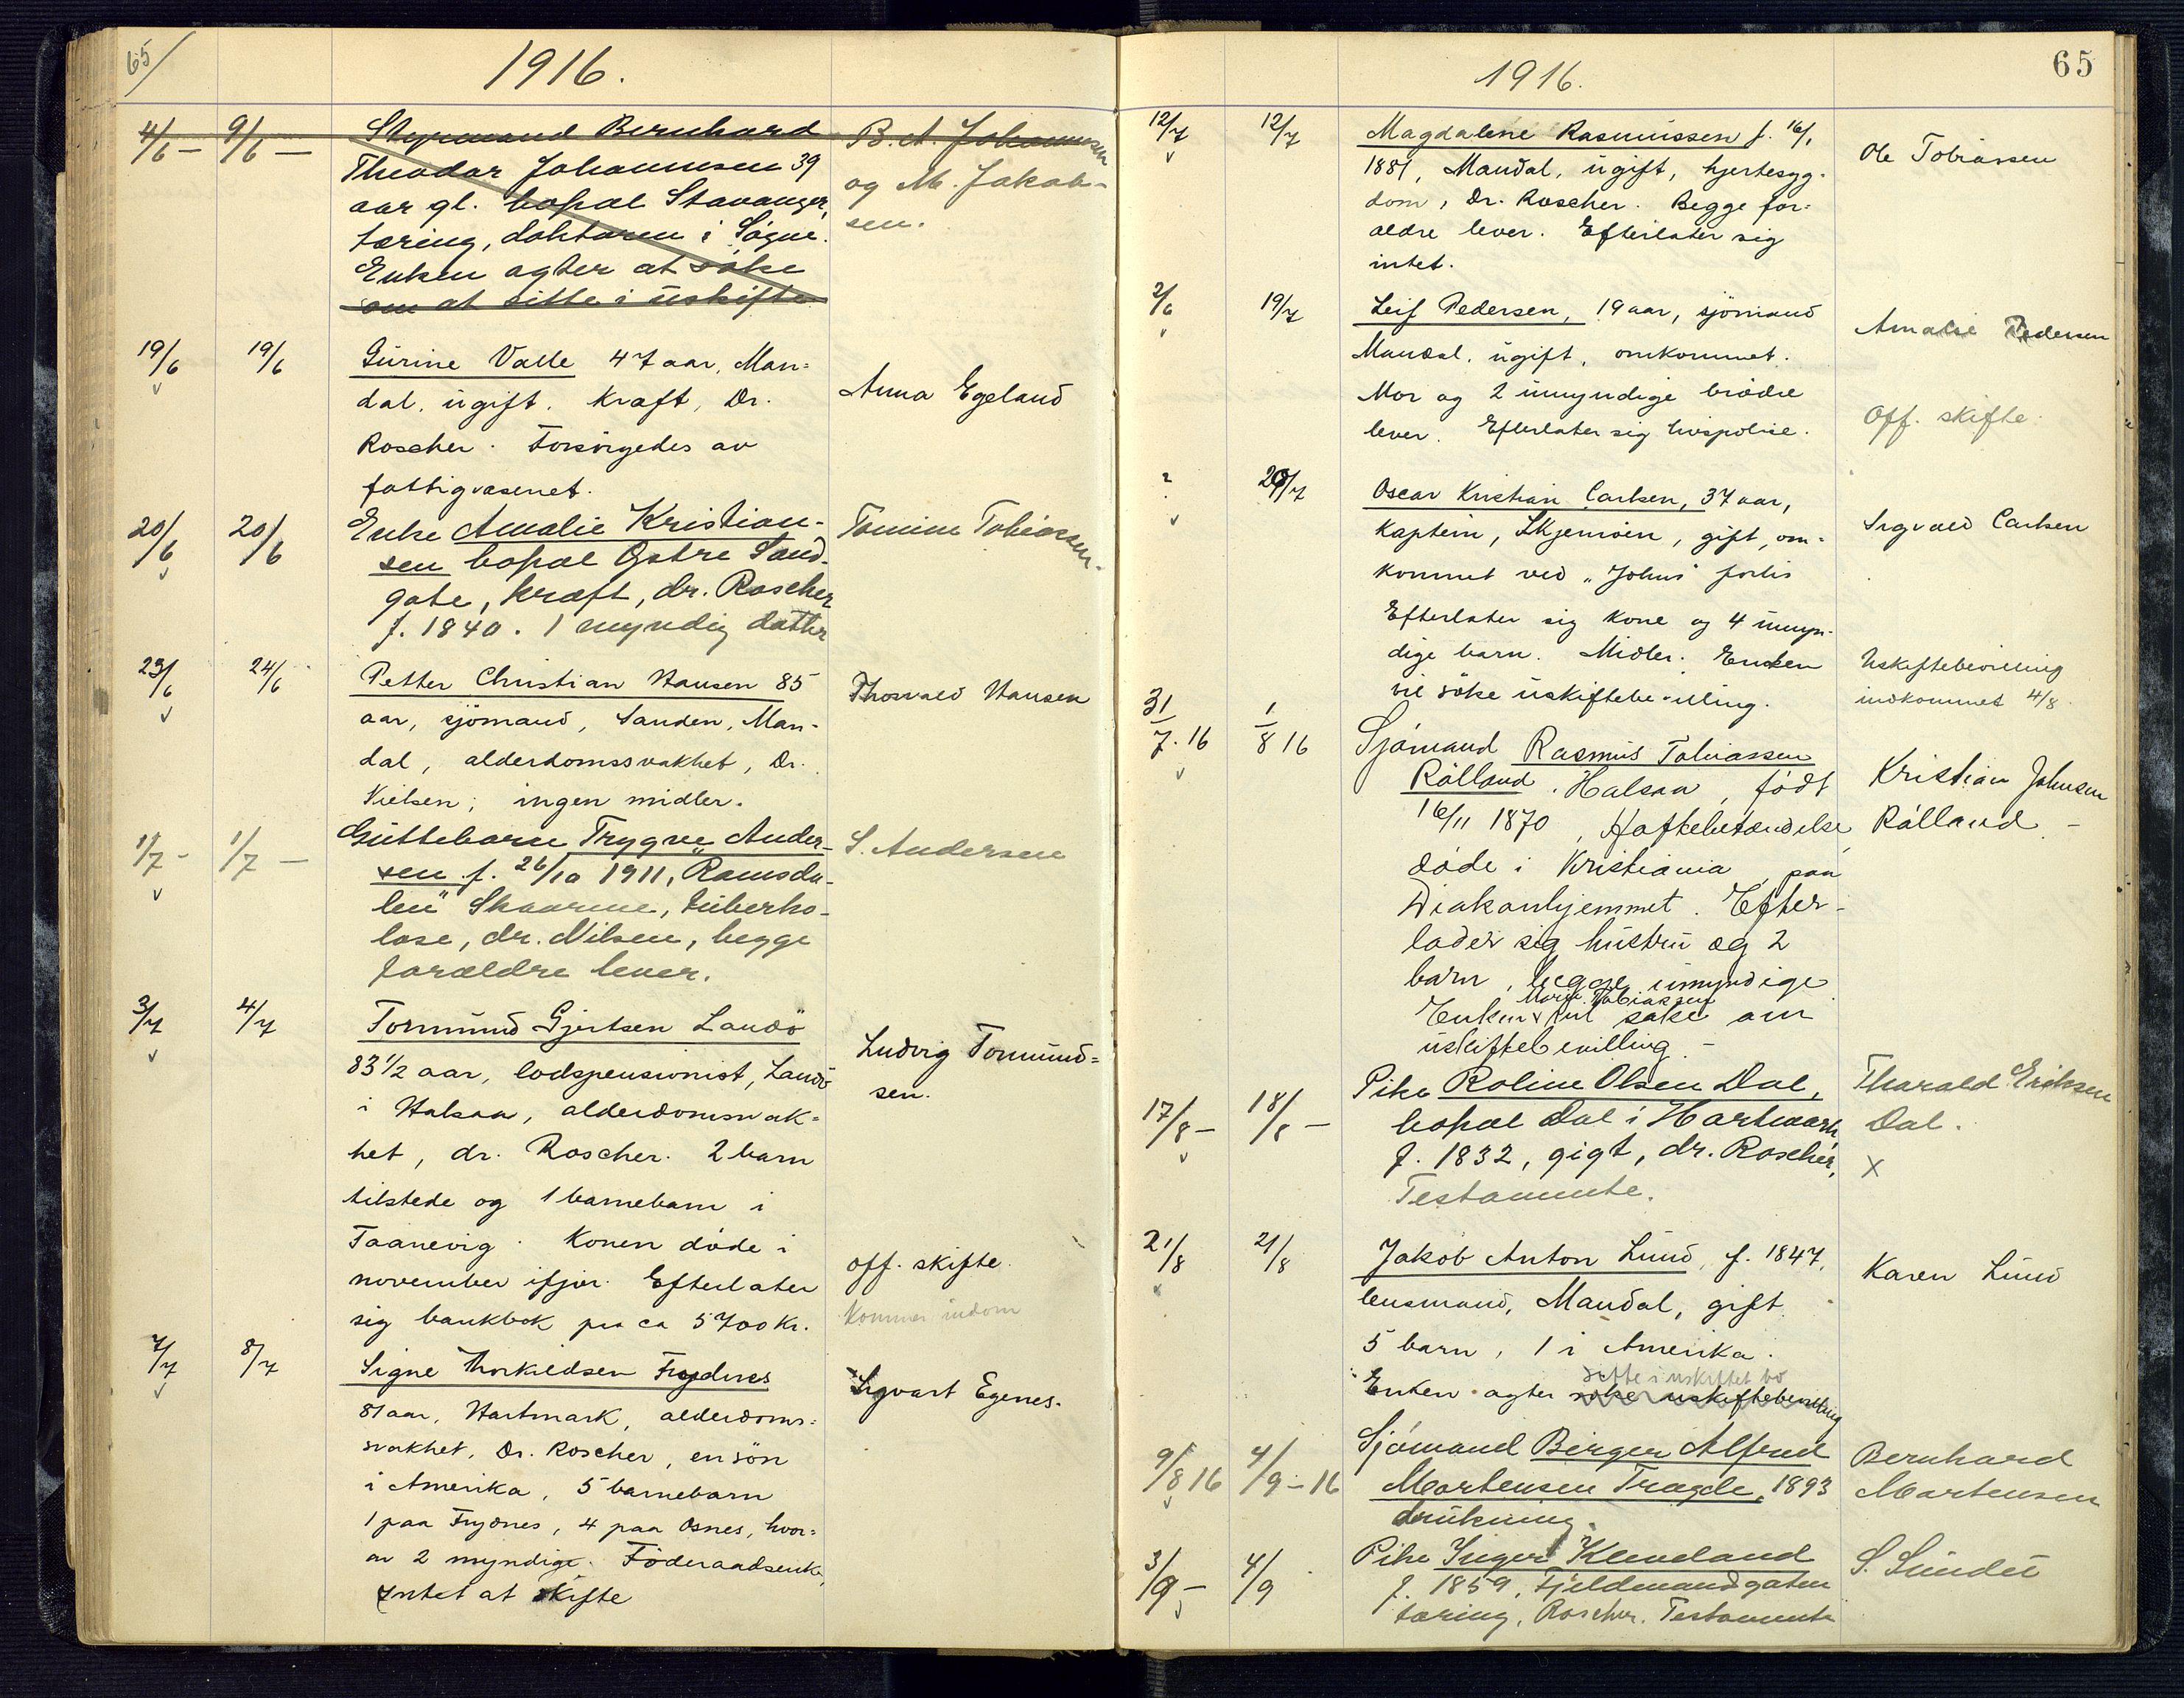 65/
1916.
4/6 — 9/6 — Styrmand Bernhard B. A. Johannesen
Theodor Johannesen 39 og M. Jakob-
aar gl. bopæl Stavanger, sen.
tæring, doktoren i Søgne.
Enken agter at søke
om at sitte i uskifte
19/6 19/6 Gurine Valle 47 aar, Man=
dal. ugift. Kræft, Dr. Anna Egeland
Roscher. Forsørgedes av
fattigvæsenet.
20/6 20/6 Enke Amalie Kristian- Tomine Tobiassen.
sen bopæl Østre Sand-
gate, kræft, dr. Roscher
f. 1840. 1 myndig datter
23/6 24/6 Petter Christian Hansen 85 Thorvald Hansen
aar, sjömand, Sanden, Man-
dal, alderdomssvakhet, Dr.
Nielsen; ingen midler.
1/7 - 1/7 — Guttebarn Trygve Ander- S. Andersen
sen f. 26/10 1911, "Ramsda-
len" Skaarene, tuberko-
lose, dr. Nilsen, begge
forældre lever.
3/7 4/7 Tormund Gjertsen Landö
83 1/2 aar, lodspensionist, Landö Ludvig Tormund=
i Halsaa, alderdomssvak= sen.
het, dr. Roscher. 2 barn
tilstede og 1 barnebarn i
Taanevig. Konen döde i
november ifjor. Efterlater off. skifte.
sig bankbok paa ca 5700 kr. kommer indom
7/7 8/7 Signe Thorkildsen Frydnes Sigvart Egenes.
81 aar, Hartmark, alderdoms=
svakhet, Dr. Roscher, en sön
i Amerika, 5 barnebarn
1 paa Frydnes, 4 paa Osnes, hvor=
av 2 myndige. Föderaadsenke,
Intet at skifte
65
1916.
12/7 12/7 Magdalene Rasmussen f. 16/1
1881, Mandal, ugift, hjertesyg- Ole Tobiassen
dom, Dr. Roscher. Begge for=
ældre lever. Efterlater sig
intet.
2/6 19/7 Leif Pedersen, 19 aar, sjömand Amalie Pedersen
Mandal, ugift, omkommet.
Mor og 2 umyndige brödre Off. skifte.
lever. Efterlater sig livspolise.
? 20/7 Oscar Kristian Carlsen, 37 aar,
kaptein, Skjernöen, gift, om= Sigvald Carlsen
kommet ved "Johns" forlis
Efterlater sig kone og 4 umyn-
dige barn. Midler. Enken Uskiftebevilling
vil söke uskiftebevilling. indkommet 4/8
31/7.16 1/8 16 Sjómand Rasmus Tobiassen
Rålland, Halsaa, født Kristian Johnsen
16/11 1870, Hoftebetændelse, Rålland —
døde i Kristiania, paa
Diakonhjemmet. Efter-
lader sig hustru og 2
barn, begge umyndige
Marie Tobiassen
Enken vil søke om
uskiftebevilling. —
17/8 — 18/8 — Pike Roline Olsen Dal, Tharald Eriksen
bopæl Dal i Hartmark, Dal.
f. 1832, gigt, dr. Roscher, X
Testamente.
21/8 21/8 Jakob Anton Lund, f. 1847, Karen Lund
lensmand, Mandal, gift
5 barn, 1 i Amerika.
sitte i uskiftet bo
Enken agter söke uskiftebevilling
9/8 16 4/9 - 16 Sjömand Birger Alfred Bernhard
Mortensen Tregde, 1893 Martensen
drukning.
3/9 — 4/9 Pike Inger Kleveland S. Sundet
f. 1859, Fjeldmandgaten
tæring, Roscher. Testamente